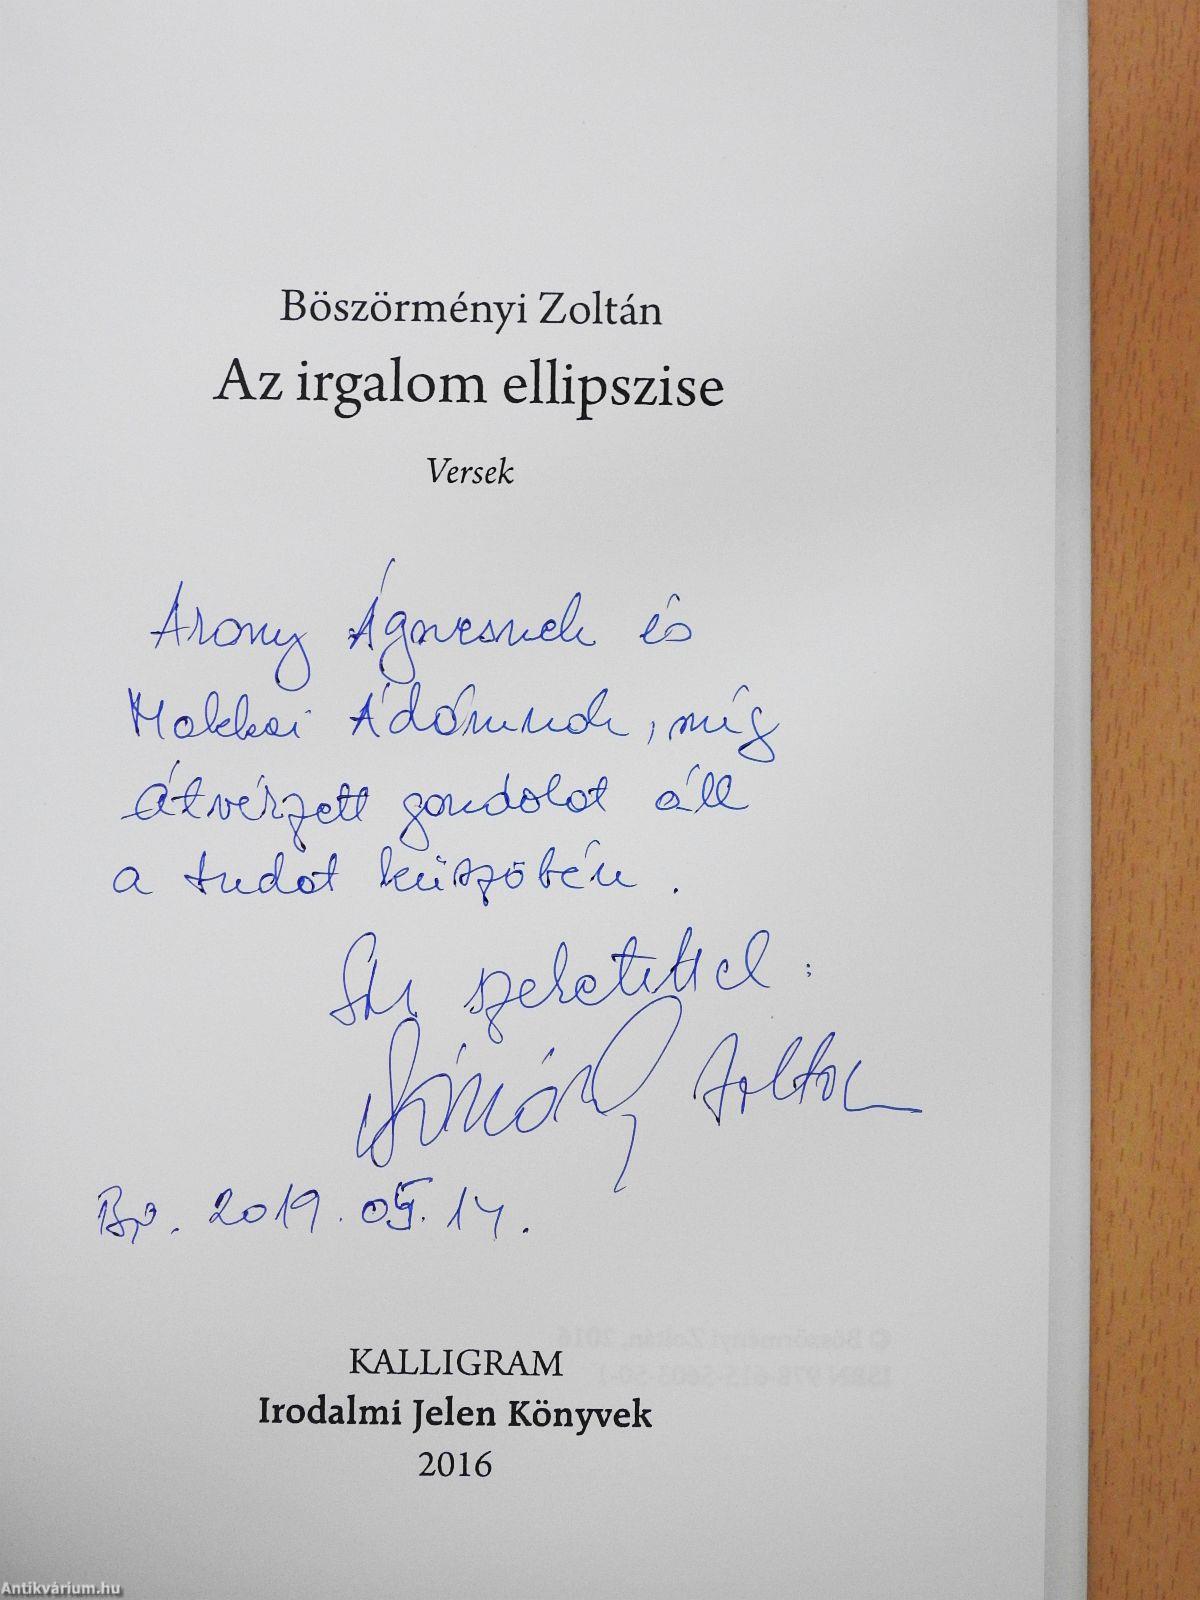 Böszörményi Zoltán
Az irgalom ellipszise
Versek
Arany Ágnesnek és
Makkai Ádámnak, míg
átvérzett gondolat áll
a tudat küszöbén.
szeretettel:
Zoltán
Bp. 2019. 05. 14.
© Böszörményi Zoltán, 2016
ISBN 978-615-5603-50-1
KALLIGRAM
Irodalmi Jelen Könyvek
2016
Antikvárium.hu